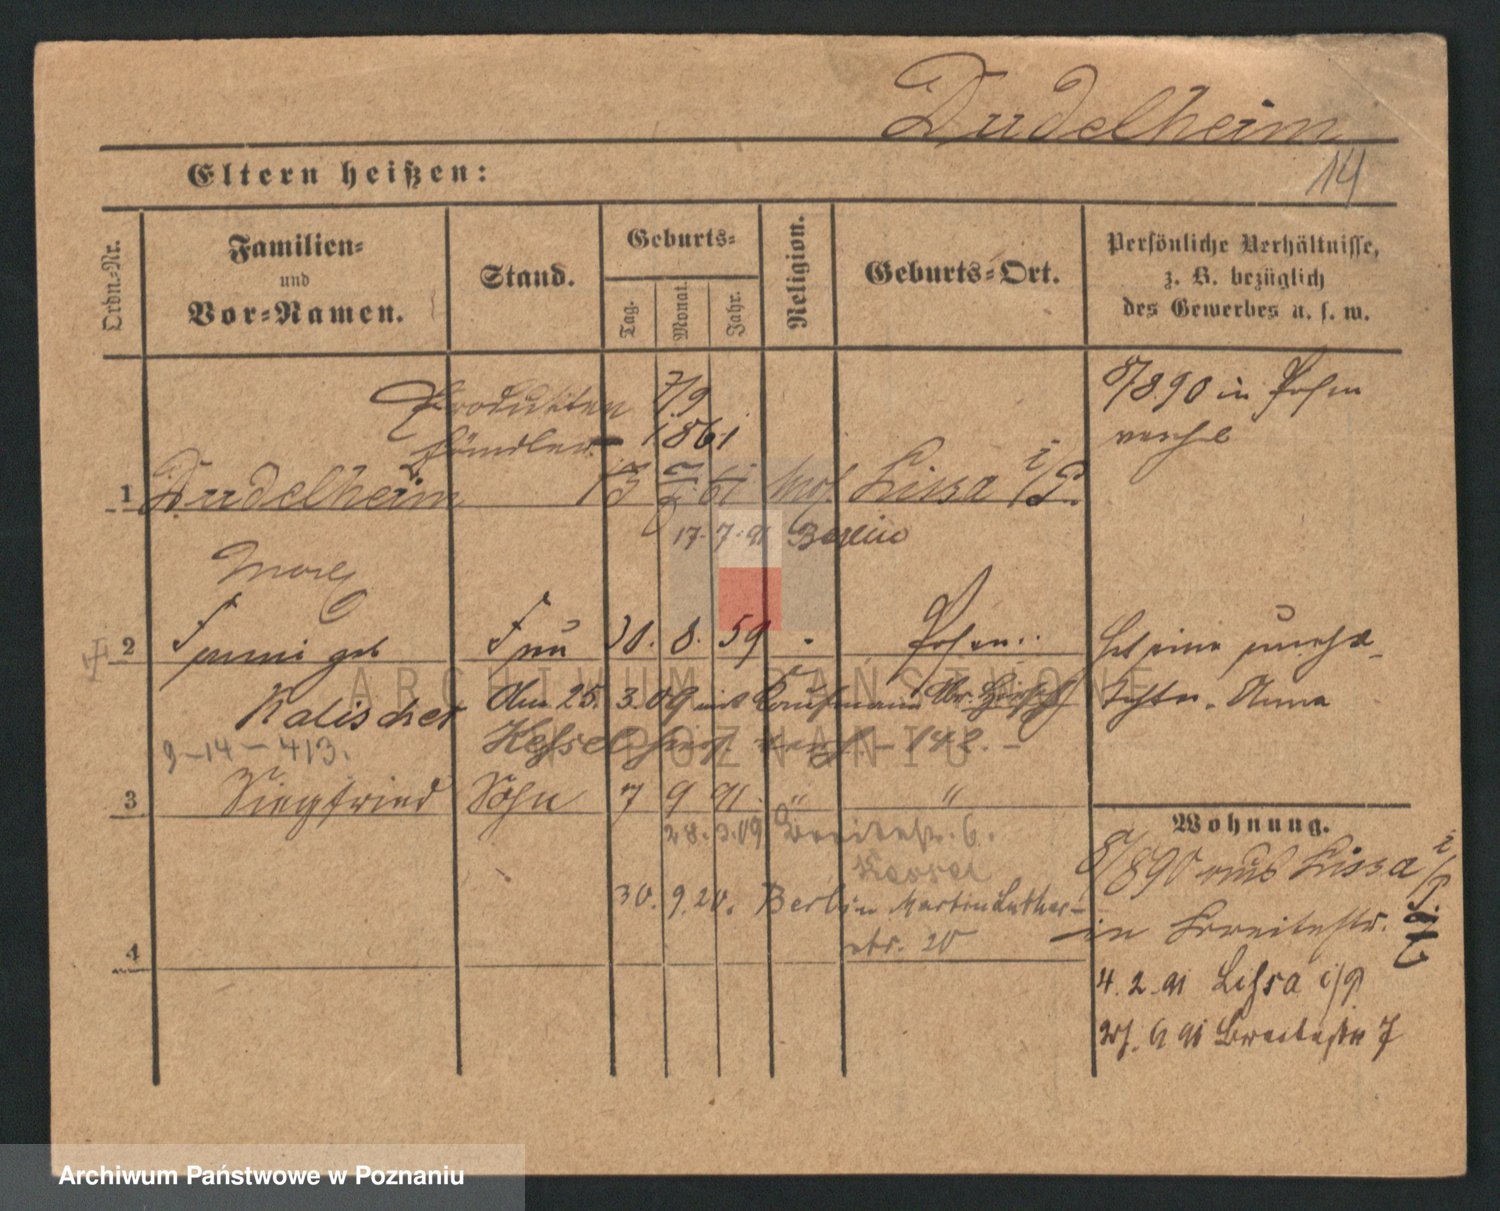 Dudelheim
14
Eltern heißen:
Ordn.-Nr.
Familien-
und
Vor-Namen.
Stand.
Geburts-
Tag.
Monat.
Jahr.
Religion.
Geburts-Ort.
Persönliche Verhältnisse,
z. B. bezüglich
des Gewerbes u. s. w.
Produkten 7/9
händler 1861
8/890 in Posen
1 Dudelheim 61 mos. Lissa i/P.
17. 7. 91 Berlin
2 Fanni geb Frau 8. 59 Posen
Hat eine
Kalischer Am 25. 3. 09 mit Kaufmann
Tochter Anna
9-14-413.
3 Siegfried Sohn 7 9 91. " "
Wohnung.
28. 3. 09 Breitestr. 6.
Kassel
8/890 aus Lissa i/P.
30. 9. 20. Berlin Martin Luther-
str. 20
in Breitestr.
4
4. 2. 91 Lissa i/P
6 91 Breitestr 7
ARCHIWUM PAŃSTWOWE
W POZNANIU
Archiwum Państwowe w Poznaniu